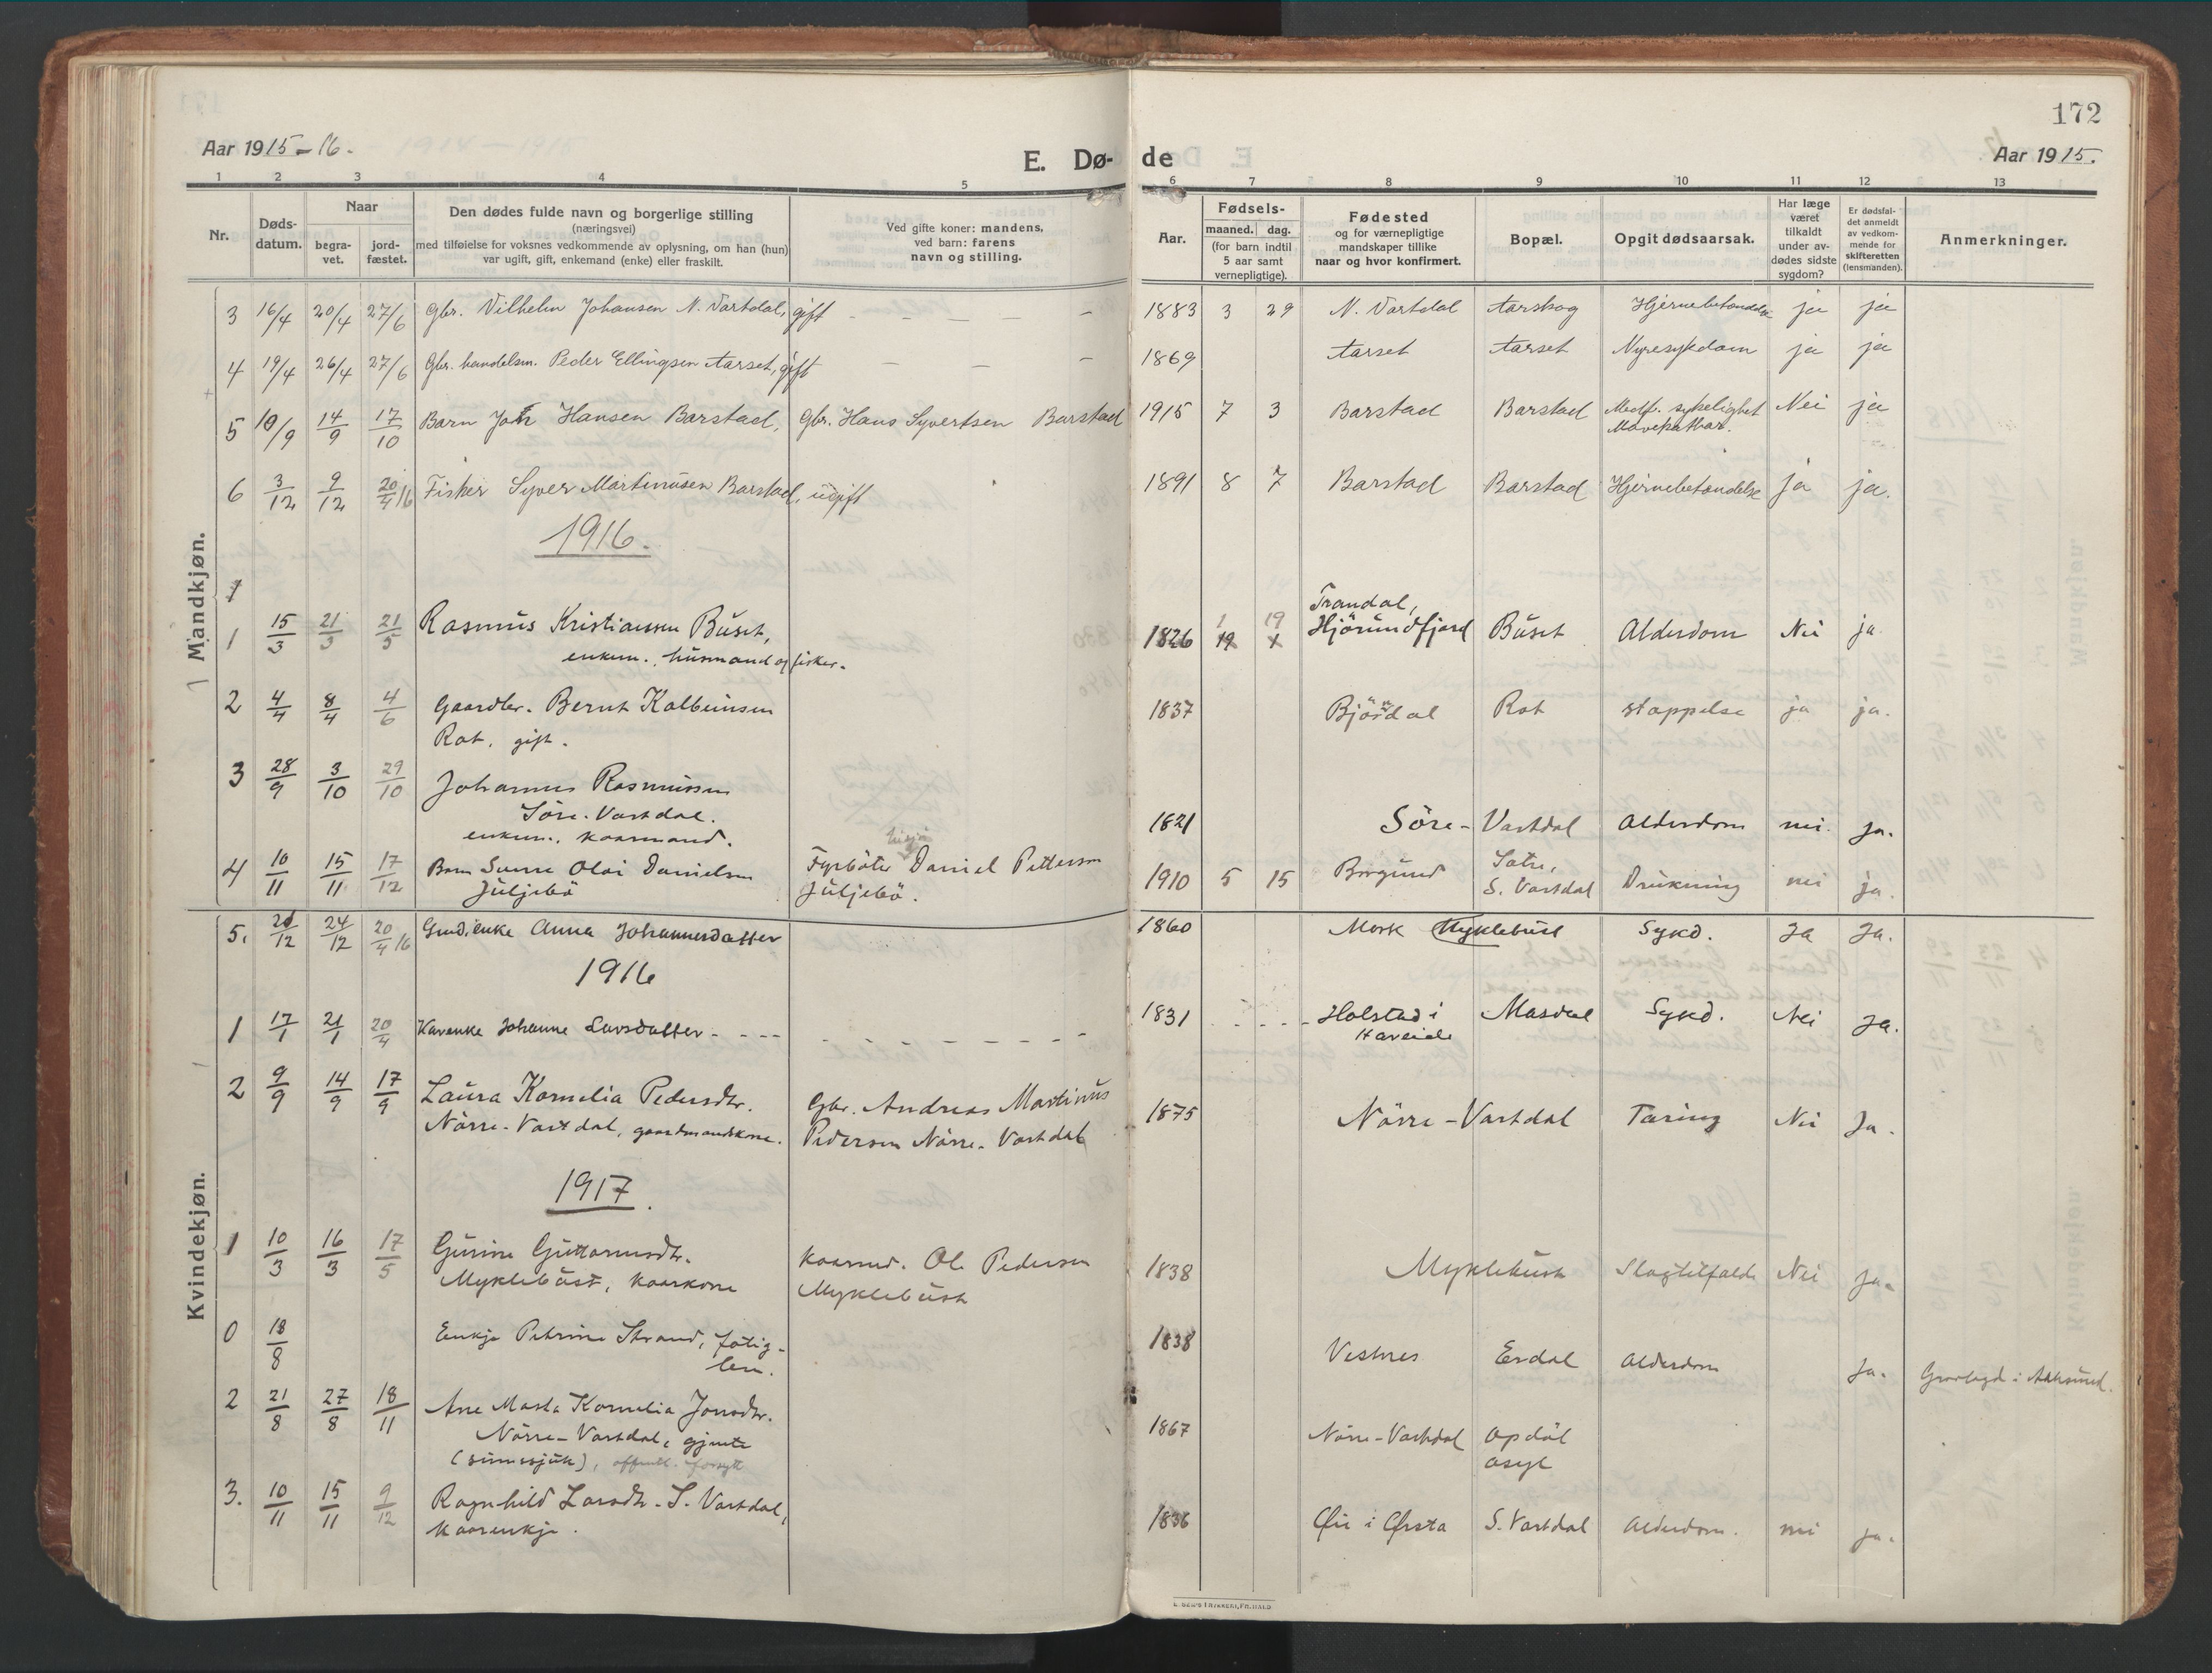 172
Aar 1915-16.
E. Dø-de
Aar 1915.
1 2 3 4 5 6 7 8 9 10 11 12 13
Nr.
Døds-datum.
Naar
begra-vet.
jord-fæstet.
Den dødes fulde navn og borgerlige stilling
(næringsvei)
med tilføielse for voksnes vedkommende av oplysning, om han (hun)
var ugift, gift, enkemand (enke) eller fraskilt.
Ved gifte koner: mandens,
ved barn: farens
navn og stilling.
Aar.
Fødsels-
maaned. dag.
(for barn indtil
5 aar samt
vernepligtige).
Fødested
og for værnepligtige
mandskaper tillike
naar og hvor konfirmert.
Bopæl.
Opgit dødsaarsak.
Har læge
været
tilkaldt
under av-
dødes sidste
sygdom?
Er dødsfal-
det anmeldt
av vedkom-
mende for
skifteretten
(lensmanden).
Anmerkninger.
Mandkjøn.
3 16/4 20/4 27/6 Gbr. Vilhelm Johansen N. Vartdal, gift - - - - - 1883 3 29 N. Vartdal Aarskog Hjernebetændelse ja ja
4 19/4 26/4 27/6 Gbr. handelsm. Peder Ellingsen Aarset, gift - - - 1869 Aarset Aarset Nyresykdom ja ja
5 10/9 14/9 17/10 Barn Hansen Barstad, Gbr. Hans Syvertsen Barstad 1915 7 3 Barstad Barstad Medf. sykelighet Nei ja
Mavekathar.
6 3/12 9/12 20/4 16 Fisker Syver Martinusen Barstad, ugift 1891 8 7 Barstad Barstad Hjernebetændelse ja ja.
1916.
1 15/3 21/3 21/5 Rasmus Kristianssen Buset, 1826 1 19 Trandal,
Hjörundfjord Buset Alderdom Nei ja
enkem., husmand og fisker.
2 4/4 8/4 4/6 Gaardbr. Bernt Kolbeinsen 1837 Björdal Rot stoppelse ja ja.
Rot. gift.
3 28/9 3/10 29/10 Johannes Rasmussen
Söre-Vartdal.
enkem., kaarmand. 1821 Söre-Vartdal Alderdom nei. ja.
4 10/11 15/11 17/12 Barn Sverre Olai Danielsen Fyrböter Daniel Pettersen 1910 5 15 Borgund Sætre,
Juljebö Juljebö. S. Vartdal Drukning nei ja.
Kvindekjøn.
5. 20/12 24/12 20/4 16 Gmd.enke Anna Johannesdatter 1860 Mork Myklebust Sykd. Ja Ja.
1916
1 17/1 21/1 20/4 Kårenke Johanne Larsdatter - - - - 1831 Holstad i Masdal Sykd. Nei Ja.
Hareide
2 9/9 14/9 17/9 Laura Kornelia Pedersdtr. Gbr. Andreas Martinus 1875 Nörre-Vartdal Tæring Nei Ja.
Nörre-Vartdal, gaardmandskone. Pedersen Nörre-Vartdal
1917.
1 10/3 16/3 17/5 Gurine Guttormsdtr. Kaarmd. Ole Pedersen 1838 Myklebust Slagtilfælde Nei Ja.
Myklebust, kaarkone Myklebust
0 18/8 Enkje Petrine Strand, fatig-
lem. 1838 Vestnes Erdal Alderdom Ja. Gravlagd i Aalesund.
2 21/8 27/8 18/11 Ane Marta Kornelia Jonsdtr. 1867 Nörre-Vartdal Opdöl
Nörre-Vartdal, gjente asyl
(sinnssjuk), offentl. forsytt
3. 10/11 15/11 9/12 Ragnhild Larsdtr. S. Vartdal, 1836 Øie i Ørsta S. Vartdal Alderdom. nei ja.
kaarenkje.